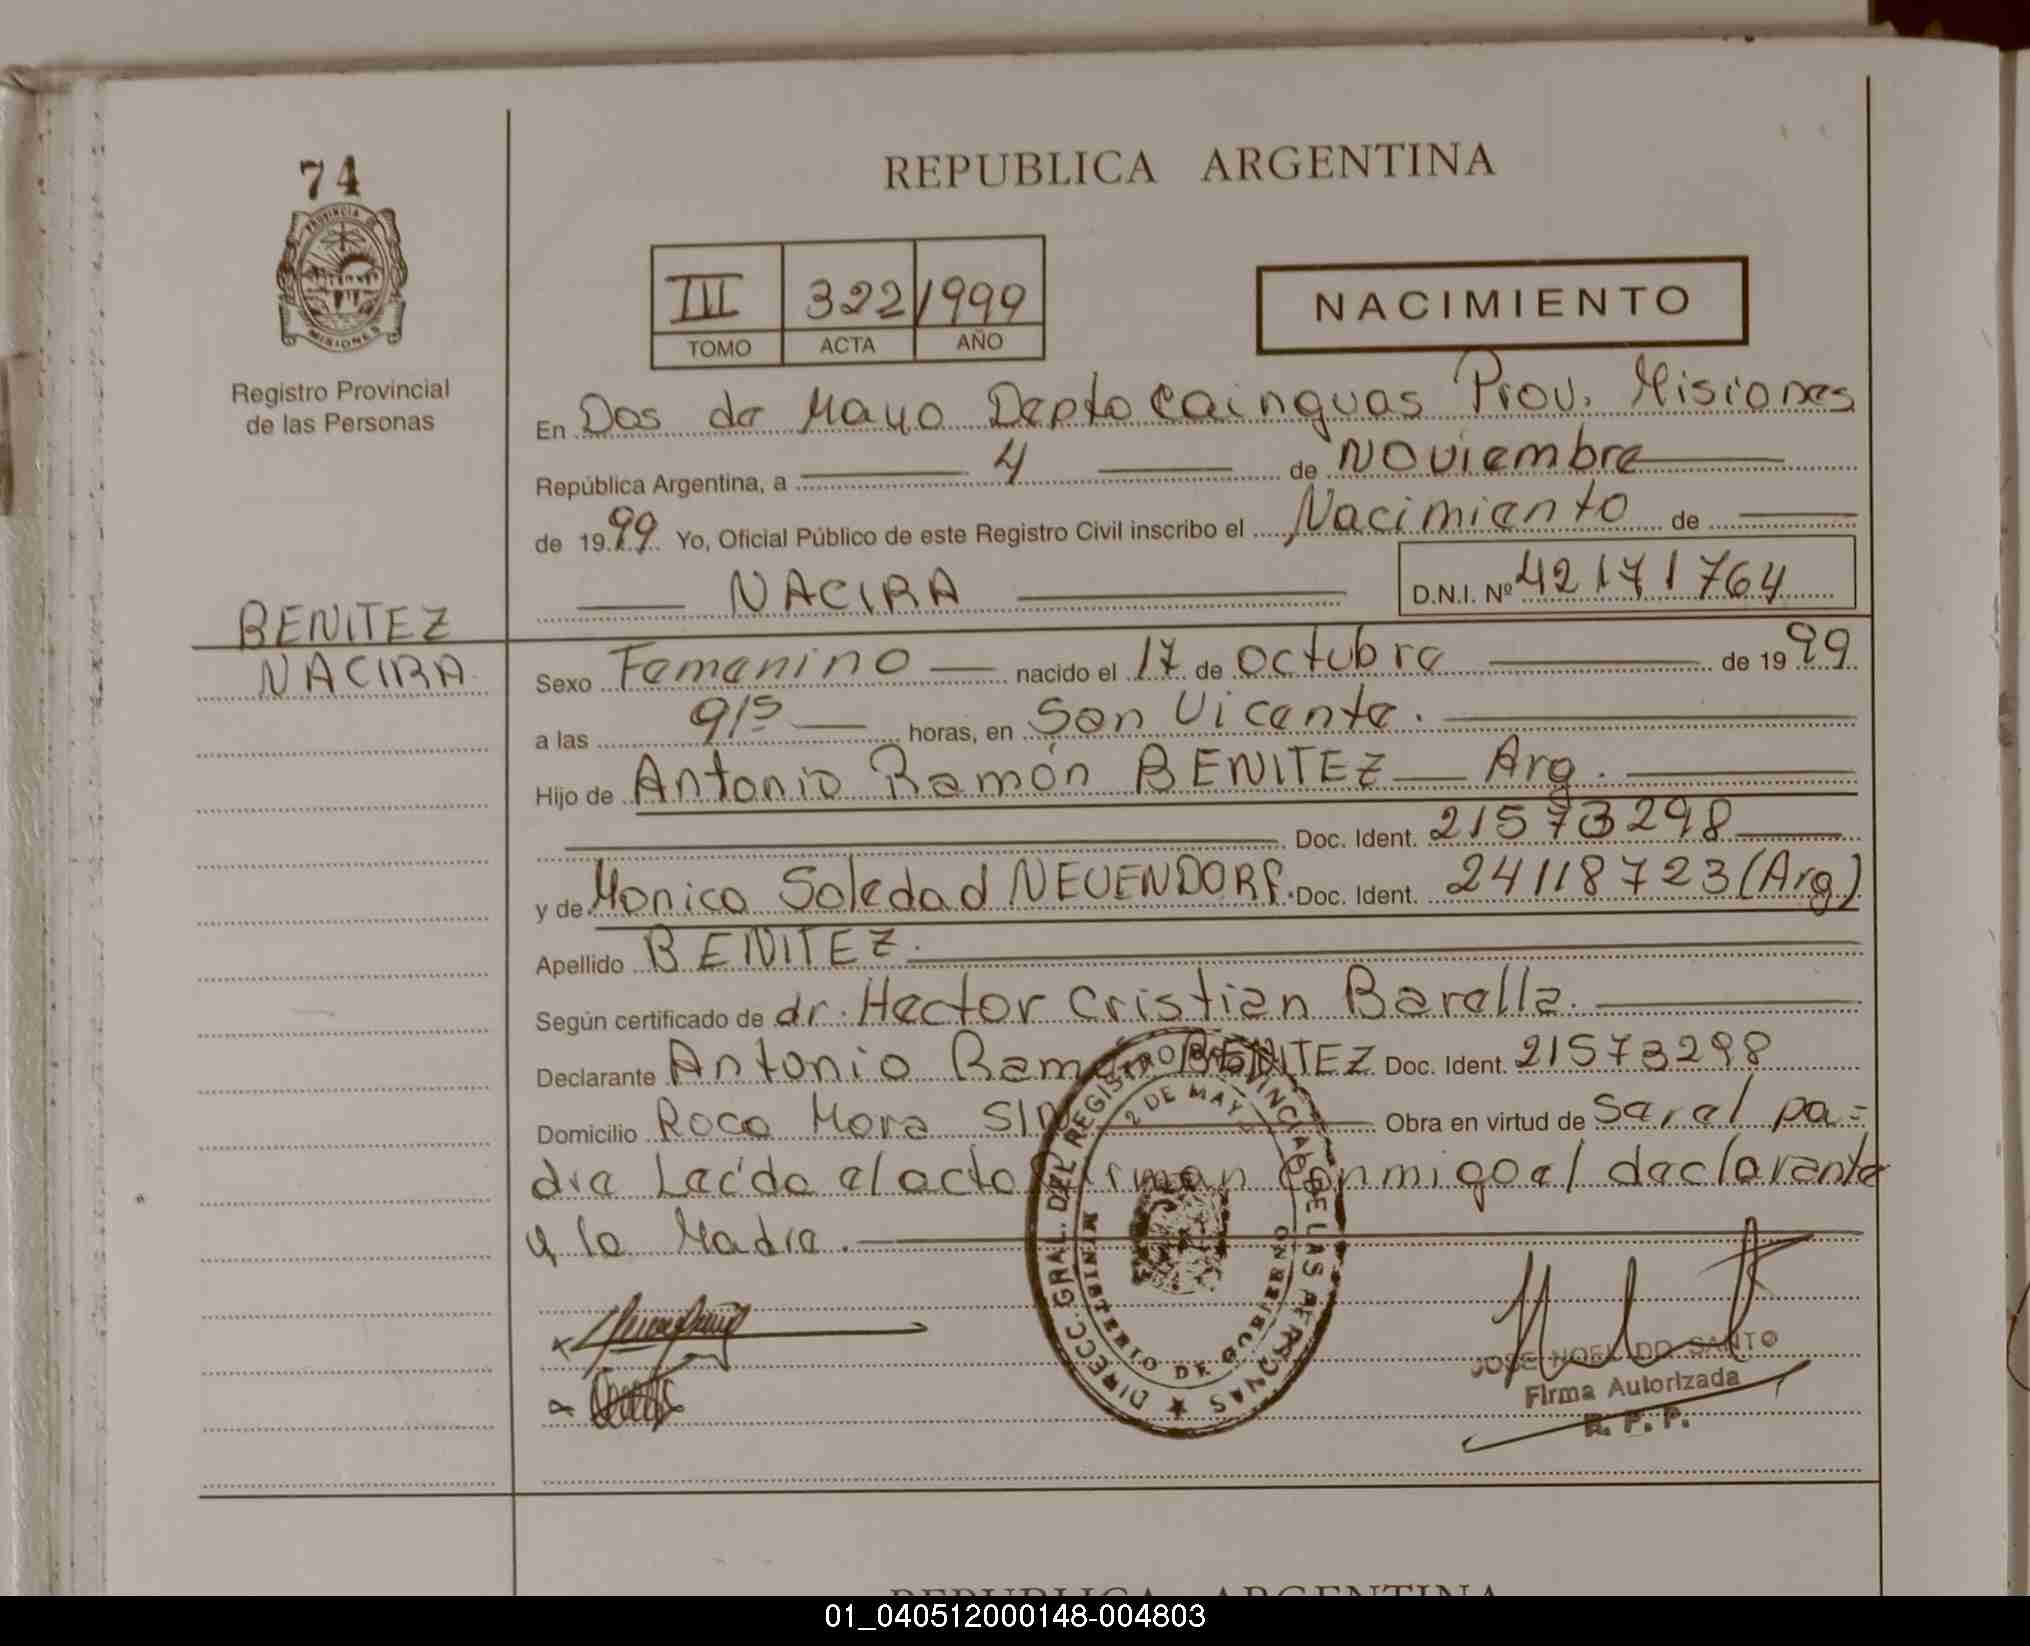 74
PROVINCIA DE
MISIONES
Registro Provincial
de las Personas
BENITEZ
NACIRA
REPUBLICA ARGENTINA
III 322 1999
TOMO ACTA AÑO
NACIMIENTO
En Dos de Mayo Depto Cainguas Prov. Misiones
República Argentina, a 4 de Noviembre
de 1999 Yo, Oficial Público de este Registro Civil inscribo el Nacimiento de
NACIRA D.N.I. Nº 42171764
Sexo Femenino nacido el 17 de octubre de 1999
a las 9/15 horas, en San Vicente.
Hijo de Antonio Ramón BENITEZ Arg.
Doc. Ident. 21573298
y de Monica Soledad NEUENDORF. Doc. Ident. 24118723 (Arg)
Apellido BENITEZ.
Según certificado de dr. Hector Cristian Barella.
Declarante Antonio Ramón BENITEZ Doc. Ident. 21573298
Domicilio Roca Mora S/n Obra en virtud de Ser el pa=
dre Leída el acto firman conmigo el declarante
y la Madre.
DIRECC. GRAL. DEL REGISTRO PROVINCIAL DE LAS PERSONAS
2 DE MAYO
MINISTERIO DE GOBIERNO
JOSE NOEL DO SANTO
Firma Autorizada
R. P. P.
REPUBLICA ARGENTINA
01_040512000148-004803